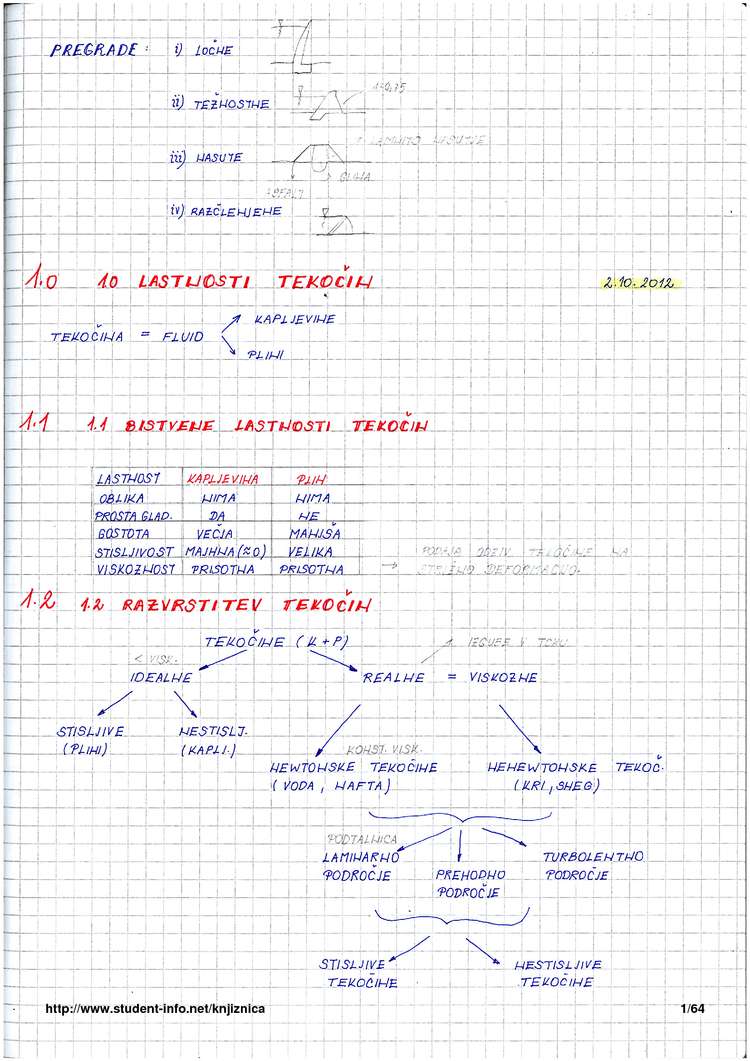 PREGRADE: i) LOČNE
ii) TEŽNOSTNE
1:0,75
iii) NASUTE
LAMELNO NASUTJE
GLINA
ASFALT
iv) RAZČLENJENE
1.0 1.0 LASTNOSTI TEKOČIN 2.10.2012
TEKOČINA = FLUID
KAPLJEVINE
PLINI
1.1 1.1 BISTVENE LASTNOSTI TEKOČIN
LASTNOST KAPLJEVINA PLIN
OBLIKA NIMA NIMA
PROSTA GLAD. DA NE
GOSTOTA VEČJA MANJŠA
STISLJIVOST MAJHNA (≈0) VELIKA
VISKOZNOST PRISOTNA PRISOTNA
→ PODAJA ODZIV TEKOČINE NA
STRIŽNO DEFORMACIJO.
1.2 1.2 RAZVRSTITEV TEKOČIN
TEKOČINE (K+P)
IZGUBE V TOKU
< VISK.
IDEALNE REALNE = VISKOZNE
STISLJIVE NESTISLJ.
(PLINI) (KAPLJ.)
KONST. VISK.
NEWTONSKE TEKOČINE NENEWTONSKE TEKOČ.
(VODA, NAFTA) (KRI, SNEG)
PODTALNICA
LAMINARNO TURBOLENTNO
PODROČJE PREHODNO PODROČJE
PODROČJE
STISLJIVE NESTISLJIVE
TEKOČINE TEKOČINE
http://www.student-info.net/knjiznica 1/64